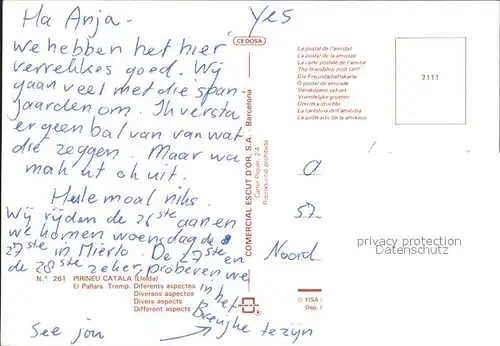 Ha Anja -
Yes
we hebben het hier
verrekkes goed. Wij
gaan veel met die span-
jaarden om. Ik versta
er geen bal van van wat
die zeggen. Maar wa
mah nt ok uit.
Hele moal niks.
Wij rijden de 26ste aan en
we komen woensdag de
27ste in Mierlo. De 27ste en
de 28ste zeker, proberen we
in het
Breughe te zijn
See jou
CEDOSA
COMERCIAL ESCUT D'OR, S.A. - Barcelona
Reproducció prohibida
La postal de l'amistat
La postal de la amistad
La carte postale de l'amitié
The friendship post card
Die Freundschaftskarte
O postal de amizade
Venskapens vykort
Vriendelijke groeten
La cartolina dell'amicizia
2111
57
Noord
privacy protection
Datenschutz
N.º 261 PIRINEU CATALÀ (Lleida)
El Pallars. Tremp. Diferents aspectes
Diversos aspectos
Divers aspects
Different aspects
© FISA
Dep.